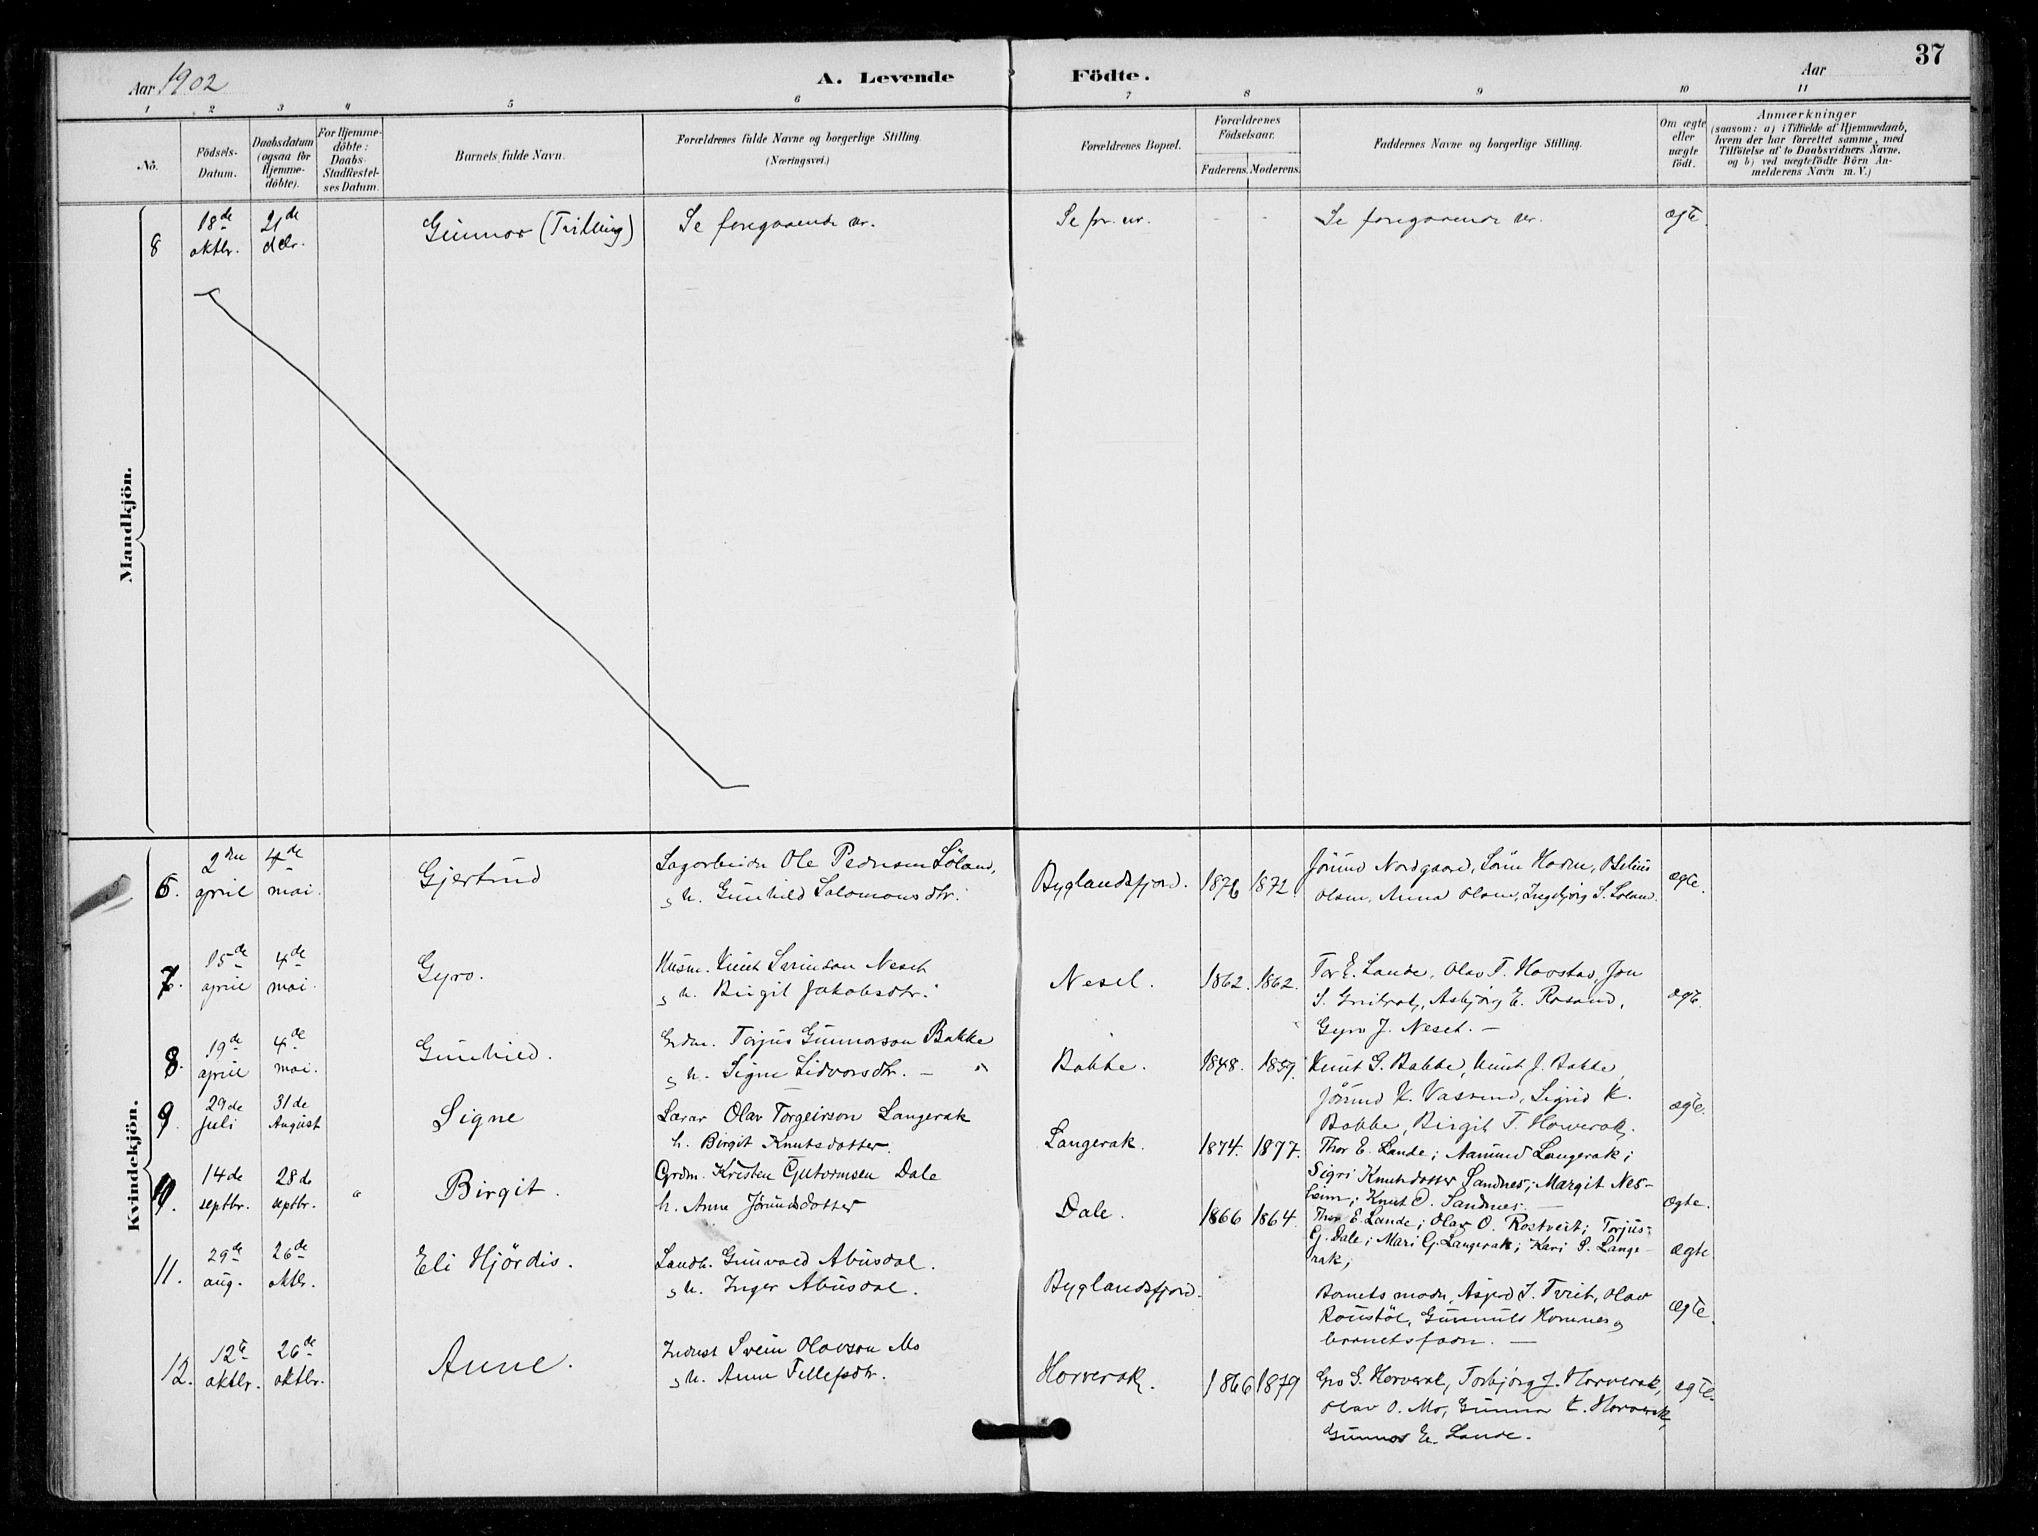 37
Aar 1902
A. Levende Födte.
Aar
1 2 3 4 5 6 7 8 9 10 11
No.
Födsels-Datum.
Daabsdatum (ogsaa for Hjemme-döbte).
For Hjemme-döbte: Daabs-Stadfestel-ses Datum.
Barnets fulde Navn.
Forældrenes fulde Navne og borgerlige Stilling.
(Næringsvei.)
Forældrenes Bopæl.
Forældrenes Födselsaar.
Faderens. Moderens.
Faddernes Navne og borgerlige Stilling.
Om ægte eller uægte födt.
Anmærkninger
(saasom: a) i Tilfælde af Hjemmedaab,
hvem der har forrettet samme, med
Tilföielse af to Daabsvidners Navne,
og b) ved uægtefödte Börn An-
melderens Navn m. V.)
Mandkjön.
8 18de oktbr. 21de dcbr. Gunnar (Tvilling) Se foregaaende nr. Se for. nr. - - Se foregaaende nr. ægte.
Kvindekjön.
6. 2den april 4de mai. Gjertrud
Sagarbeider Ole Pedersen Löland,
h. Gunhild Salomonsdtr.
Byglandsfjord. 1876 1872.
Jörund Nordgaard,
Olsen, Anna Olsen, Ingebjörg S. Löland.
ægte.
7. 15de april 4de mai. Gyro.
Husm. Knut Neset
h. Birgit Jakobsdtr.
Neset. 1862. 1862.
Tor E. Lande, Olav T. Hovstad, Jon
S. Asbjörg E. Rosand,
Gyro J. Neset. —
ægte.
8. 19de april 4de mai. Gunhild.
Grdm. Torjus Gunnarson Bakke
h. Signe Sidvorsdtr. —
Bakke. 1848. 1859.
Knut G. Bakke, Knut J. Bakke,
Jörund K. Vassend, Sigrid K.
Bakke, Birgit T. Horverak.
ægte.
9. 29de Juli 31de August Signe
Lærar Olav Torgeirson Langerak
h. Birgit Knutsdotter.
Langerak. 1874. 1877.
Thor E. Lande; Aamund Langerak;
Sigri Knutsdotter Sandnes; Margit Nes-
heim; Knut O. Sandnes. —
ægte.
10. 14de septbr. 28de septbr. " Birgit.
Grdm. Kristen Guttormsen Dale
h. Anne Jörundsdotter
Dale. 1866 1864.
Thor E. Lande; Olav O. Rostveit; Torjus
G. Dale; Mari G. Langerak; Kari S. Lange-
rak;
ægte
11. 29de aug. 26de oktbr. Eli Hjördis.
Landh. Gunvald Abusdal.
h. Inger Abusdal.
Byglandsfjord.
Barnets moder, Asjerd S. Tveit, Olav
Gunnulf Homnes
barnetsfader. —
ægte.
12. 12te oktbr. 26de oktbr. Anne.
Indust Svein Olavson Mo
h. Anne Tellefsdtr.
Horverak. 1866 1879
Gro S. Horverak, Torbjörg J. Horverak,
Olav O. Mo, Gunnar K. Horverak,
Gunnar E. Lande.
ægte.